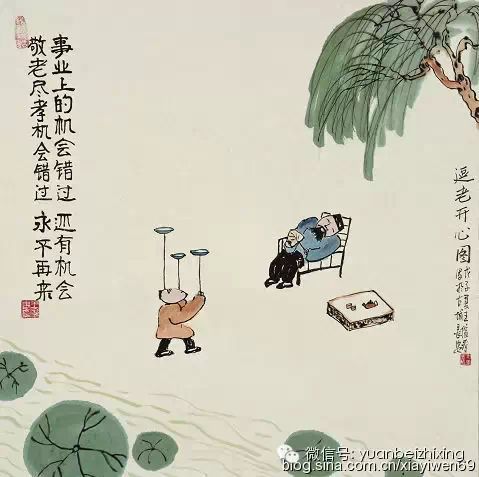 事业上的机会错过 还有机会
敬老尽孝机会错过 永不再来
逗老开心图
戊子
微信号: yuanbeizhixing
blog.sina.com.cn/xiayiwen69